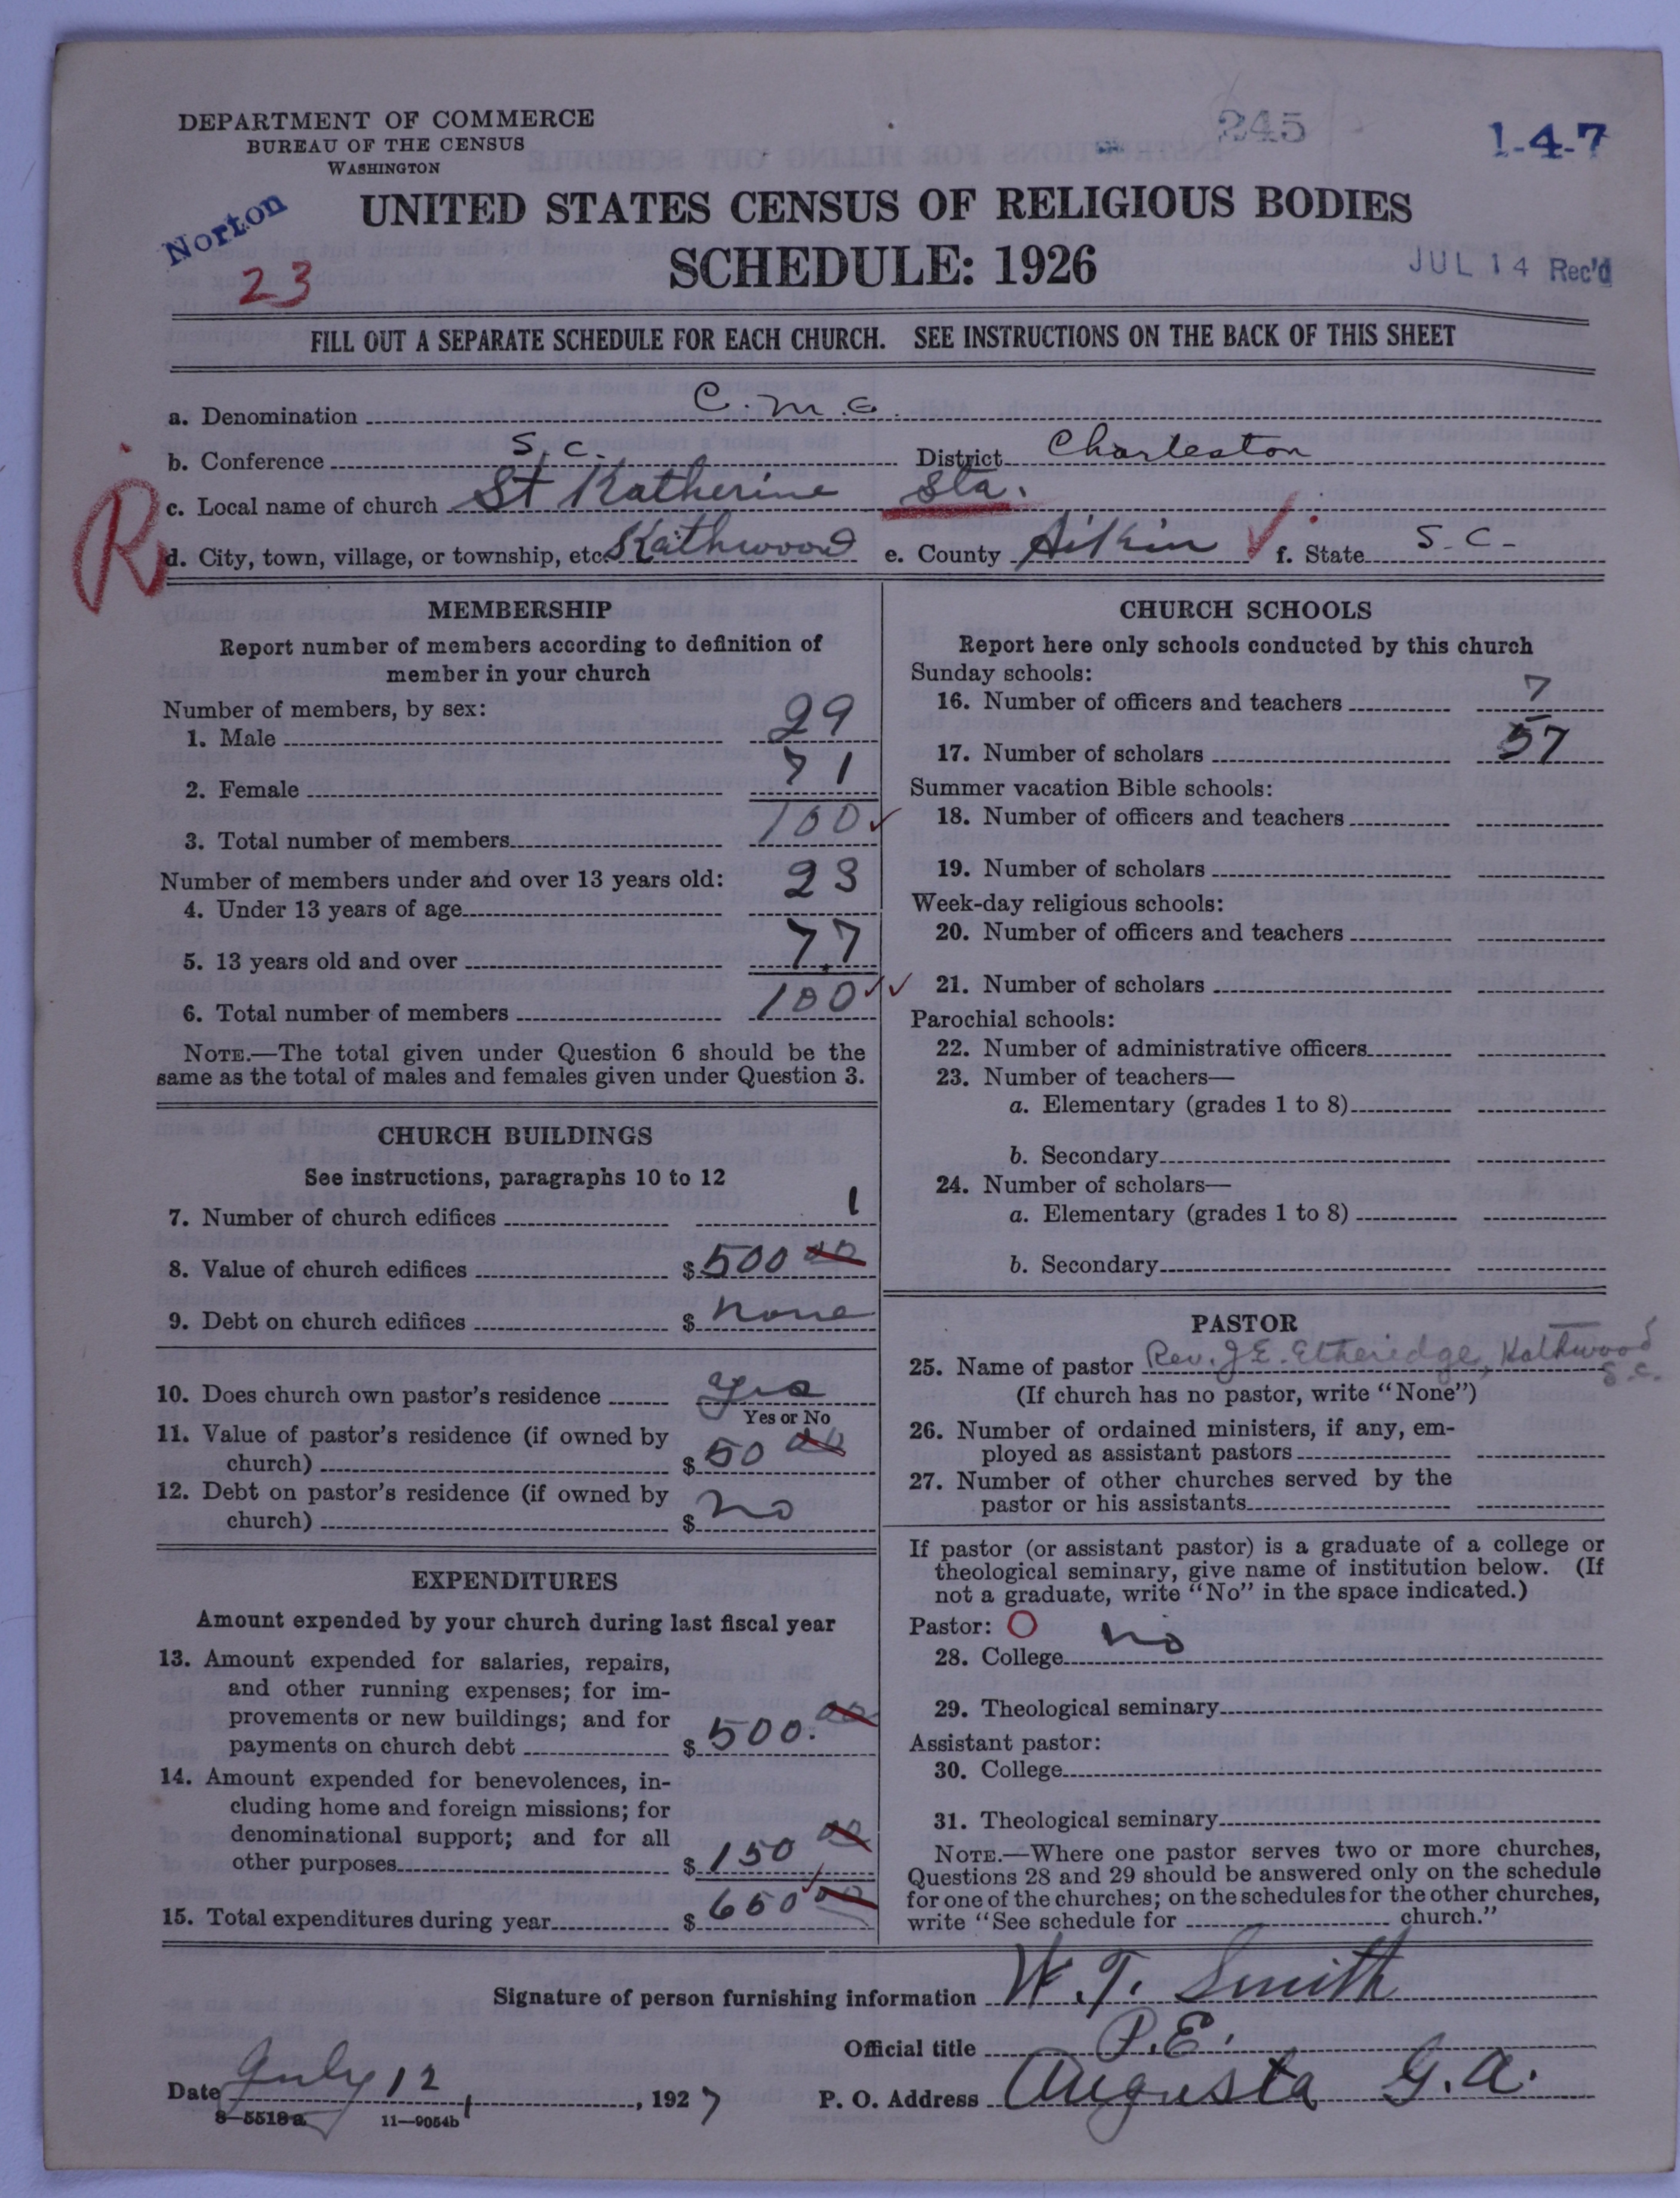 DEPARTMENT OF COMMERCE
BUREAU OF THE CENSUS
WASHINGTON
245
1-4-7
Norton
23
UNITED STATES CENSUS OF RELIGIOUS BODIES
SCHEDULE: 1926
JUL 14 Rec'd
FILL OUT A SEPARATE SCHEDULE FOR EACH CHURCH. SEE INSTRUCTIONS ON THE BACK OF THIS SHEET
a. Denomination C.M.E.
b. Conference S.C. District Charleston
c. Local name of church St Katherine Sta.
R
d. City, town, village, or township, etc. Kathwood e. County Aikin f. State S.C.
MEMBERSHIP
Report number of members according to definition of
member in your church
Number of members, by sex:
1. Male 29
2. Female 71
3. Total number of members 100
Number of members under and over 13 years old:
4. Under 13 years of age 23
5. 13 years old and over 77
6. Total number of members 100
NOTE.—The total given under Question 6 should be the
same as the total of males and females given under Question 3.
CHURCH BUILDINGS
See instructions, paragraphs 10 to 12
7. Number of church edifices 1
8. Value of church edifices $ 500 00
9. Debt on church edifices $ none
10. Does church own pastor's residence yes
Yes or No
11. Value of pastor's residence (if owned by
church) $ 50 00
12. Debt on pastor's residence (if owned by
church) $ no
EXPENDITURES
Amount expended by your church during last fiscal year
13. Amount expended for salaries, repairs,
and other running expenses; for im-
provements or new buildings; and for
payments on church debt $ 500.00
14. Amount expended for benevolences, in-
cluding home and foreign missions; for
denominational support; and for all
other purposes $ 150 00
15. Total expenditures during year $ 650 00
CHURCH SCHOOLS
Report here only schools conducted by this church
Sunday schools:
16. Number of officers and teachers 7
17. Number of scholars 57
Summer vacation Bible schools:
18. Number of officers and teachers
19. Number of scholars
Week-day religious schools:
20. Number of officers and teachers
21. Number of scholars
Parochial schools:
22. Number of administrative officers
23. Number of teachers—
a. Elementary (grades 1 to 8)
b. Secondary
24. Number of scholars—
a. Elementary (grades 1 to 8)
b. Secondary
PASTOR
25. Name of pastor Rev. J.E. Etheridge, Kathwood
S.C.
(If church has no pastor, write "None")
26. Number of ordained ministers, if any, em-
ployed as assistant pastors
27. Number of other churches served by the
pastor or his assistants
If pastor (or assistant pastor) is a graduate of a college or
theological seminary, give name of institution below. (If
not a graduate, write "No" in the space indicated.)
Pastor: O
28. College no
29. Theological seminary
Assistant pastor:
30. College
31. Theological seminary
NOTE.—Where one pastor serves two or more churches,
Questions 28 and 29 should be answered only on the schedule
for one of the churches; on the schedules for the other churches,
write "See schedule for church."
Signature of person furnishing information W. T. Smith
Official title P.E.
Date July 12, 1927 P. O. Address Augusta G.A.
8-5518a 11-9054b